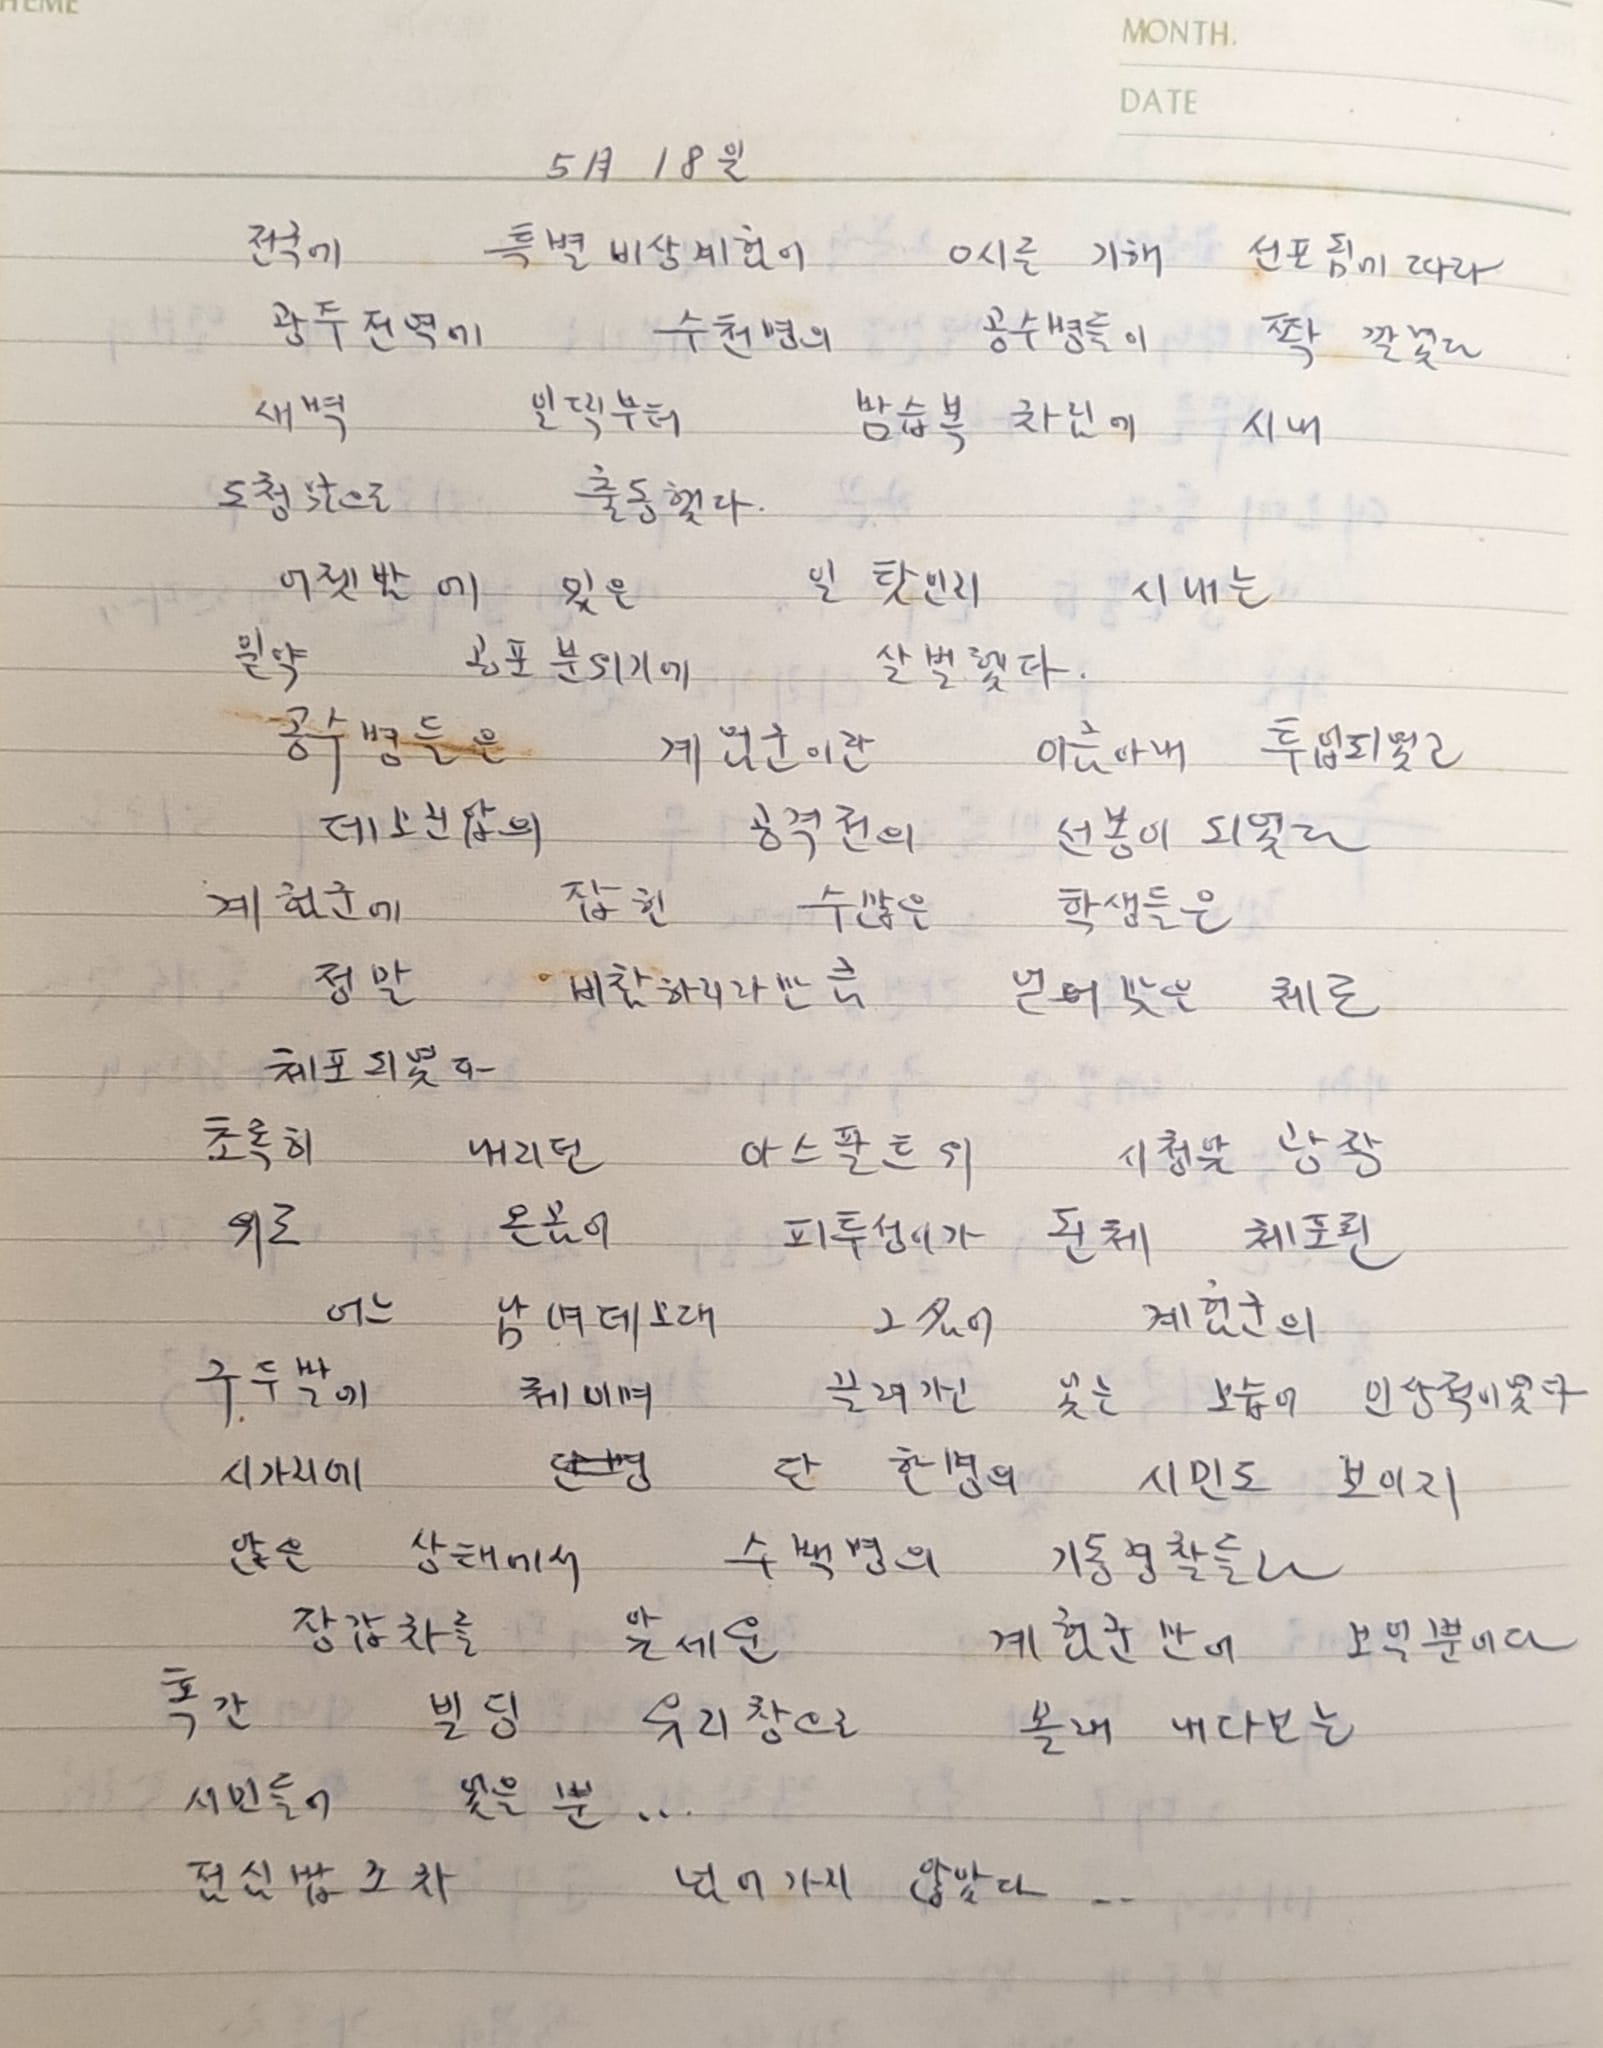 THEME
MONTH.
DATE
5月 18일
전국에 특별비상계엄이 0시를 기해 선포됨에 따라
광주전역에 수천명의 공수병들이 쫙 깔렸다
새벽 일덱부터 밤습복 차림에 시내
도청앞으로 출동했다.
어젯밤에 있은 일 탓인지 시내는
일약 공포분위기에 살벌했다.
공수병들은 계엄군이란 이름아내 투입되었고
데모진압의 공격전의 선봉이 되었다
계엄군에 잡힌 수많은 학생들은
정말 비참하리라만큼 얻어맞은 체로
체포되었다
초록히 내리던 아스팔트위 시청앞 광장
위로 온몸이 피투성이가 된체 체포된
어느 남여데모대 그 계엄군의
구두발에 체이며 끌려가고 있는 모습이 인상적이었다
시가지에 단 한명의 시민도 보이지
않은 상태에서 수백명의 기동경찰들과
장갑차를 앞세운 계엄군만이 보일뿐이다
혹간 빌딩 유리창으로 몰래 내다보는
시민들이 있을 뿐...
점심밥조차 넘어가지 않았다 ..